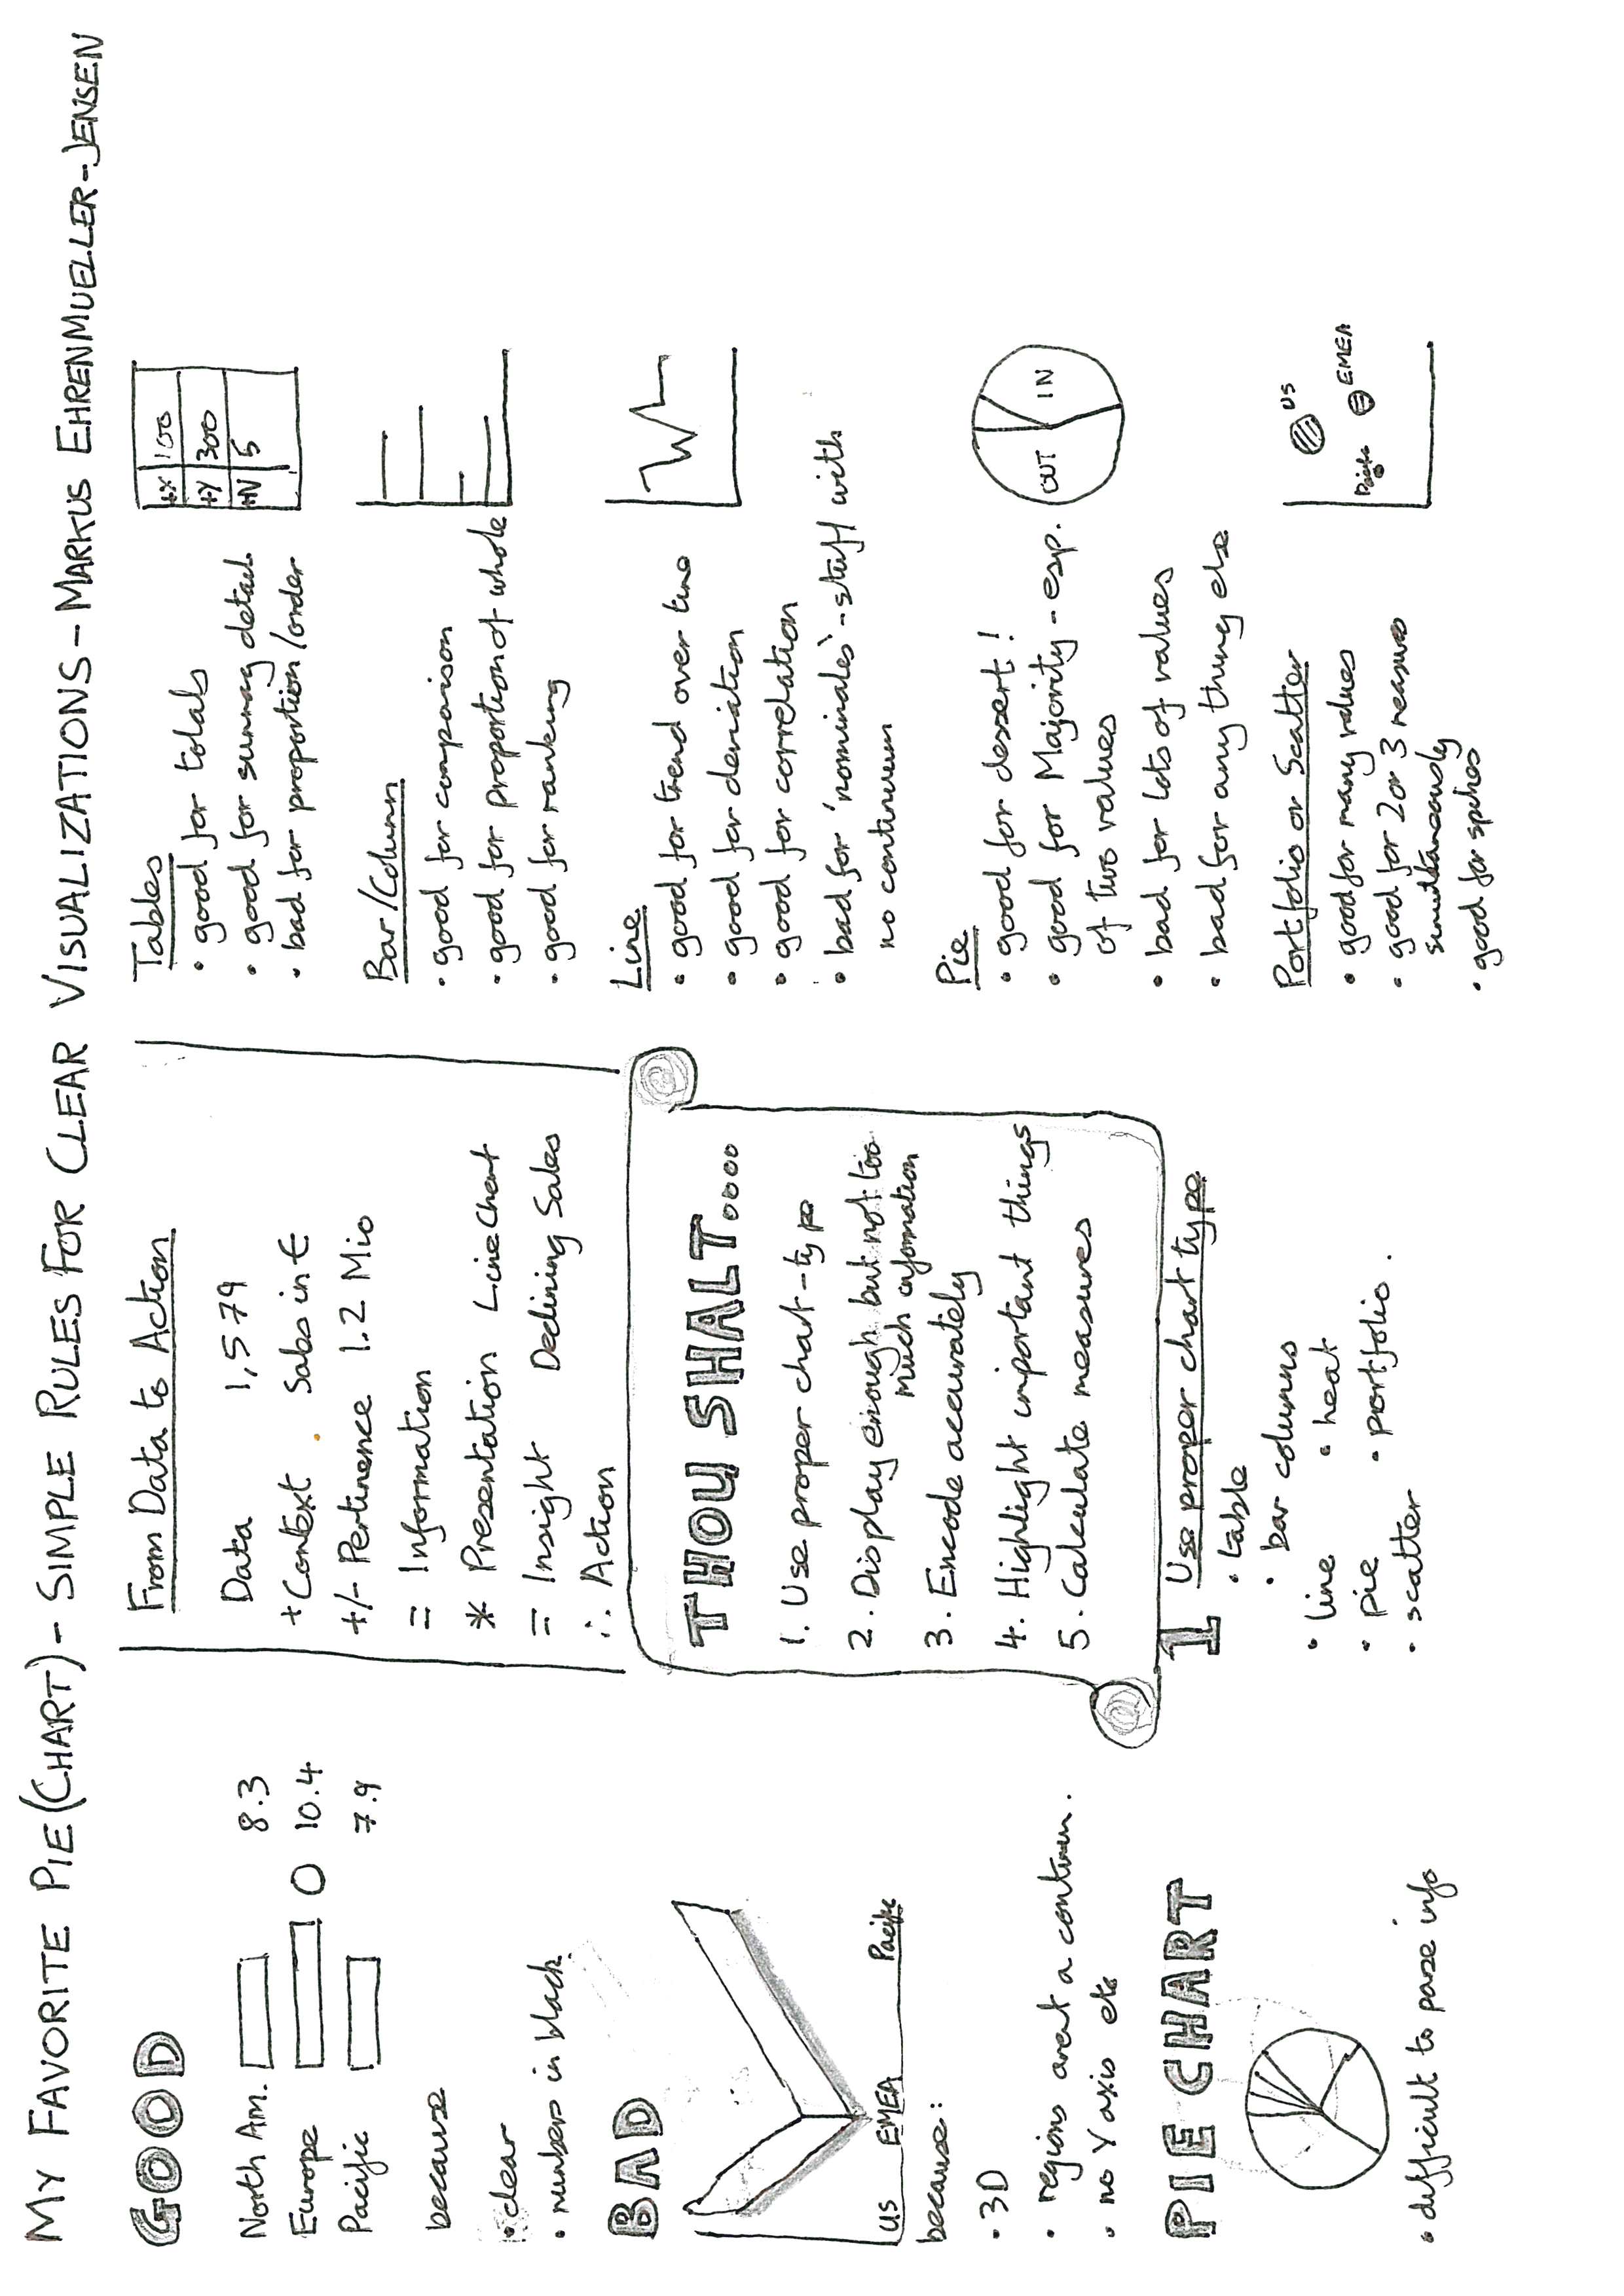 MY FAVORITE PIE(CHART) - SIMPLE RULES FOR CLEAR VISUALIZATIONS - MARKUS EHRENMUELLER-JENSEN
GOOD
North Am. 8.3
Europe 10.4
Pacific 7.9
because
• clear
• numbers in black
BAD
US EMEA Pacific
because:
• 3D
• regions arent a contium.
• no Y axis etc
PIE CHART
• difficult to parse info
From Data to Action
Data 1,579
+ Context Sales in €
+/- Pertinence 1.2 Mio
= Information
* Presentation Line Chart
= Insight Declining Sales
∴ Action
THOU SHALT....
1. Use proper chart-type
2. Display enough but not too
much information
3. Encode accurately
4. Highlight important things
5. Calculate measures
1 Use proper chart type
• table
• bar columns
• line • heat
• pie • portfolio.
• scatter
Tables
• good for totals
• good for detail
• bad for proportion/order
+X 100
+Y 300
+N 5
Bar/Column
• good for comparison
• good for proportion of whole
• good for ranking
Line
• good for trend over time
• good for deviation
• good for correlation
• bad for 'nominales' - stuff with
no continuum
Pie
• good for dessert!
• good for Majority - esp.
of two values
• bad for lots of values
• bad for any thing else
OUT IN
Portfolio or Scatter
• good for many values
• good for 2 or 3 measures
simultaneously
• good for spikes
US
EMEA
Pacific